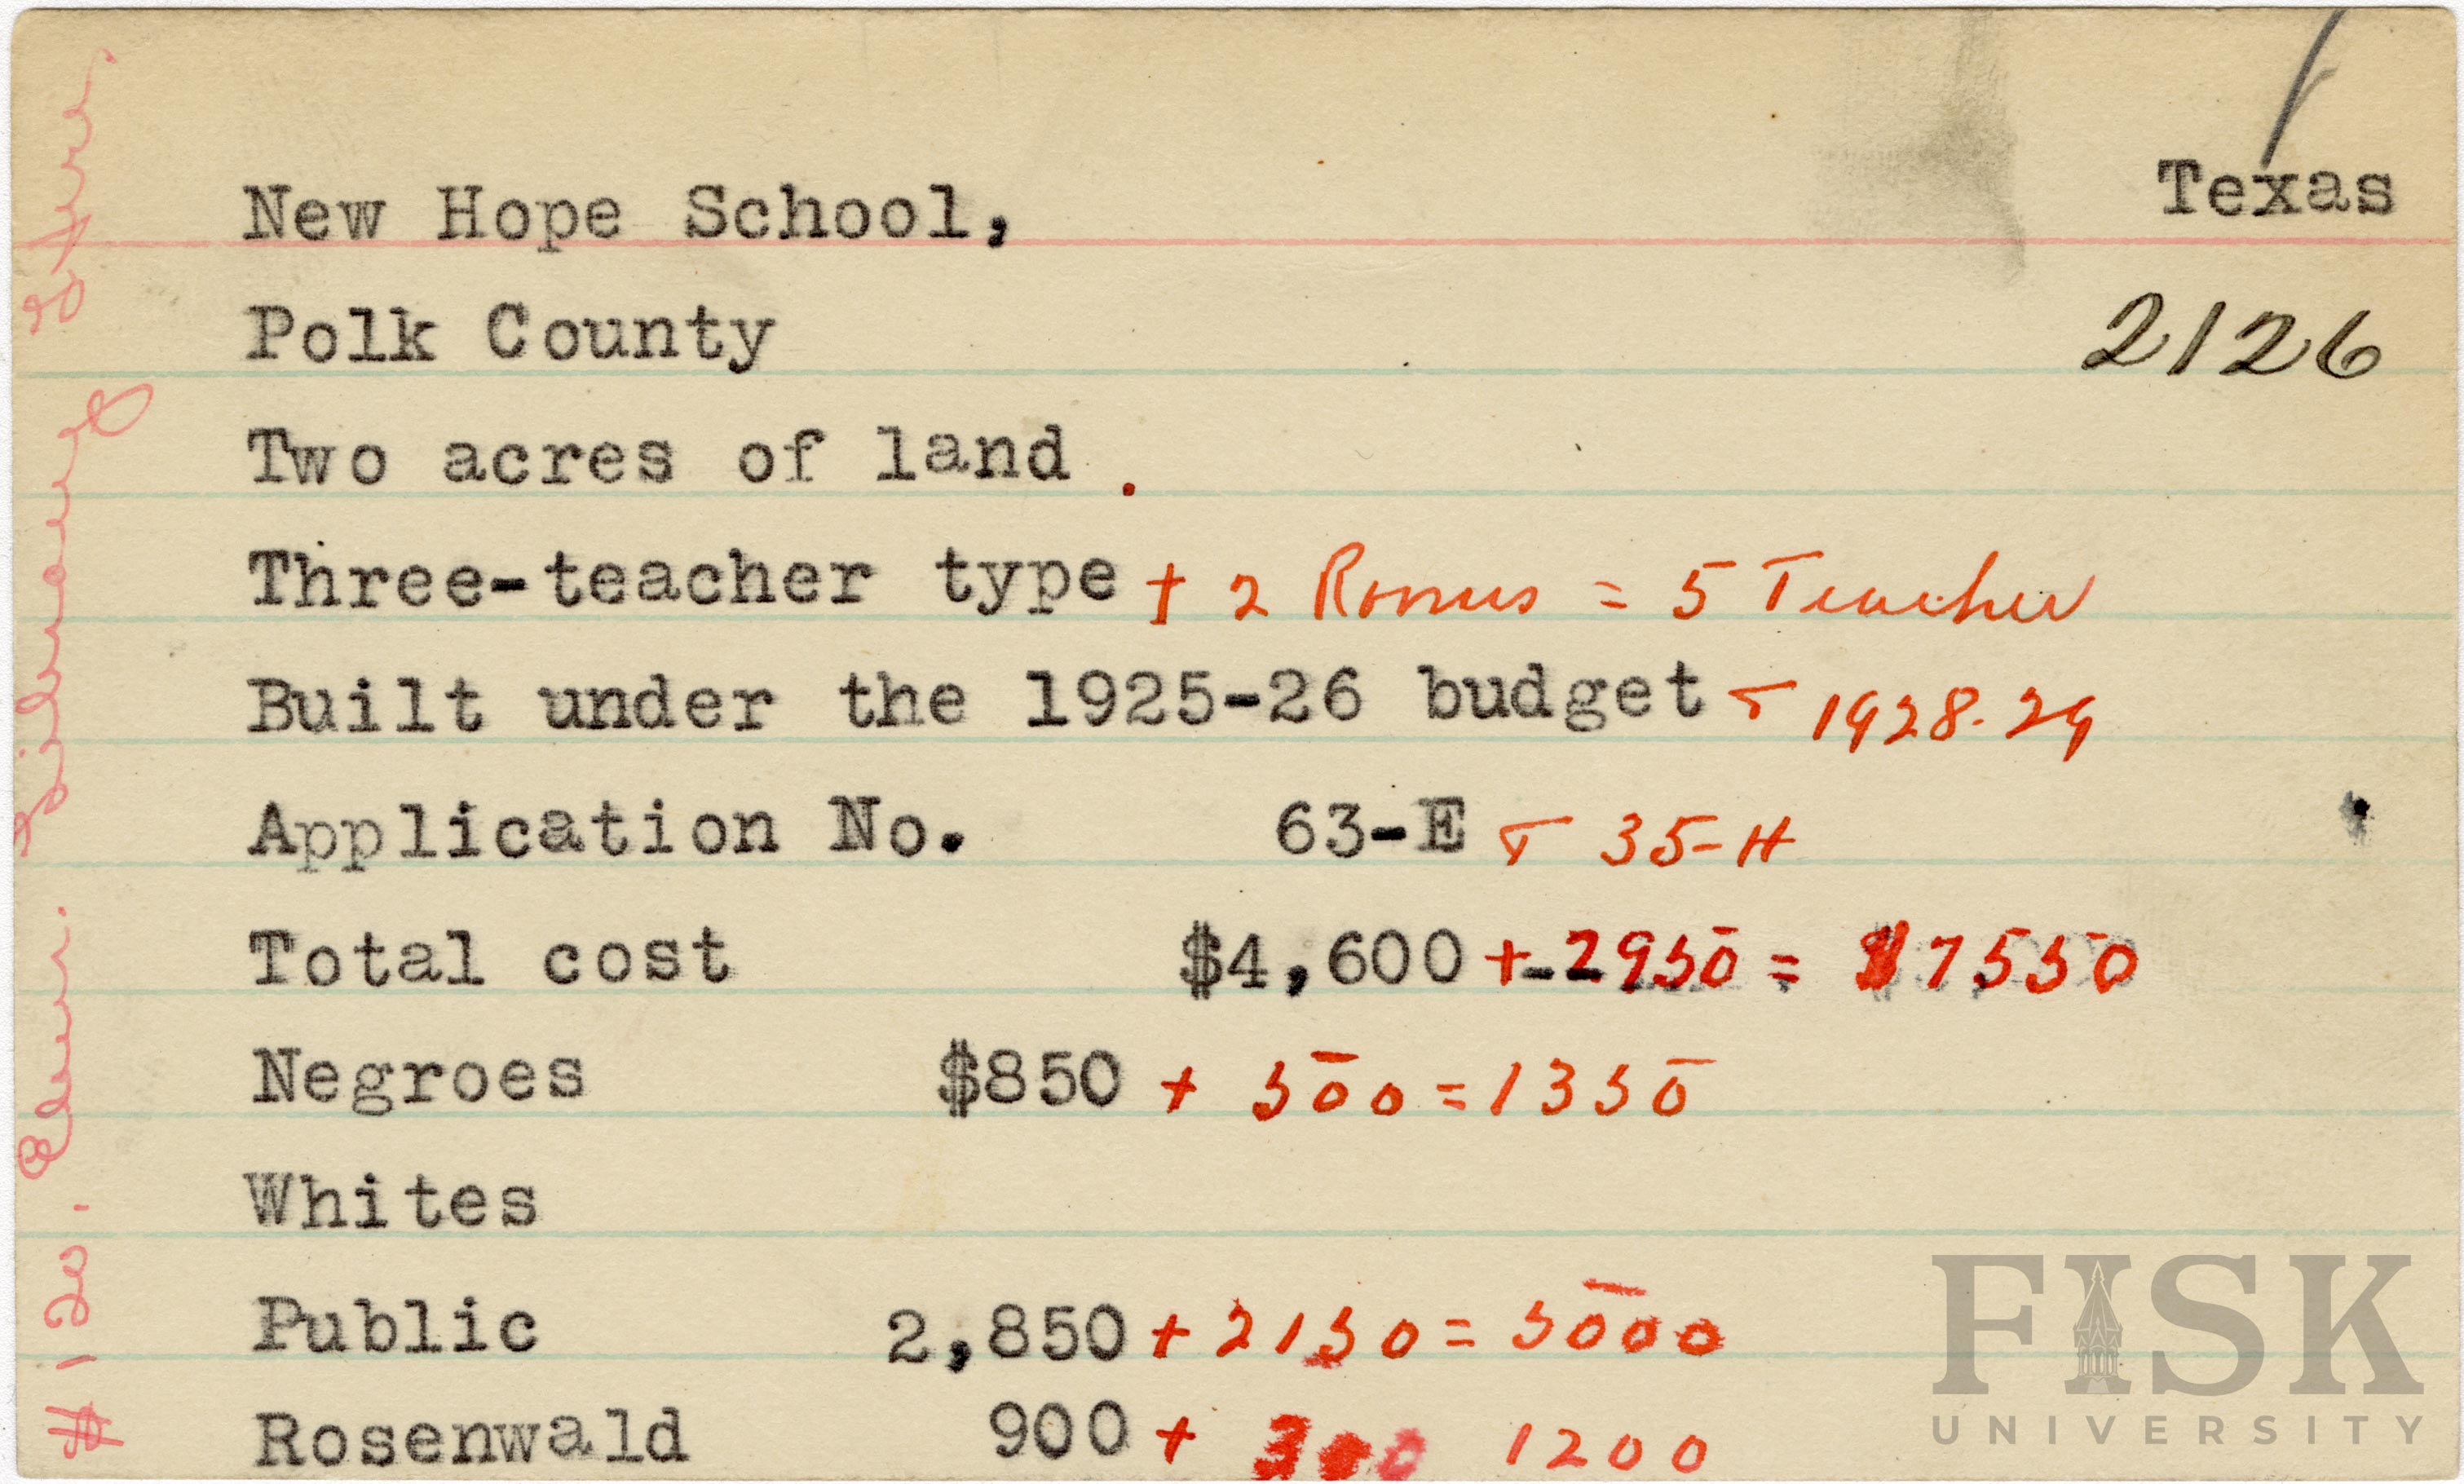 New Hope School,
Texas
Polk County
2126
Two acres of land .
Three-teacher type + 2 Rooms = 5 Teacher
Built under the 1925-26 budget + 1928-29
Application No. 63-E + 35-H
Total cost $4,600 + 2950 = $7550
Negroes $850 + 500 = 1350
Whites
Public 2,850 + 2150 = 5000
Rosenwald 900 + 300 1200
#120. Elem. Library
FISK
UNIVERSITY